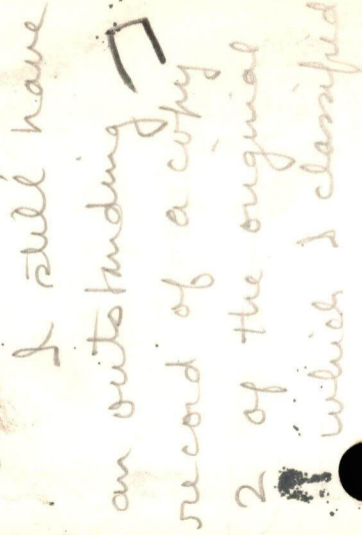 I still have
an outstanding
record of a copy
2 of the original
which I classified